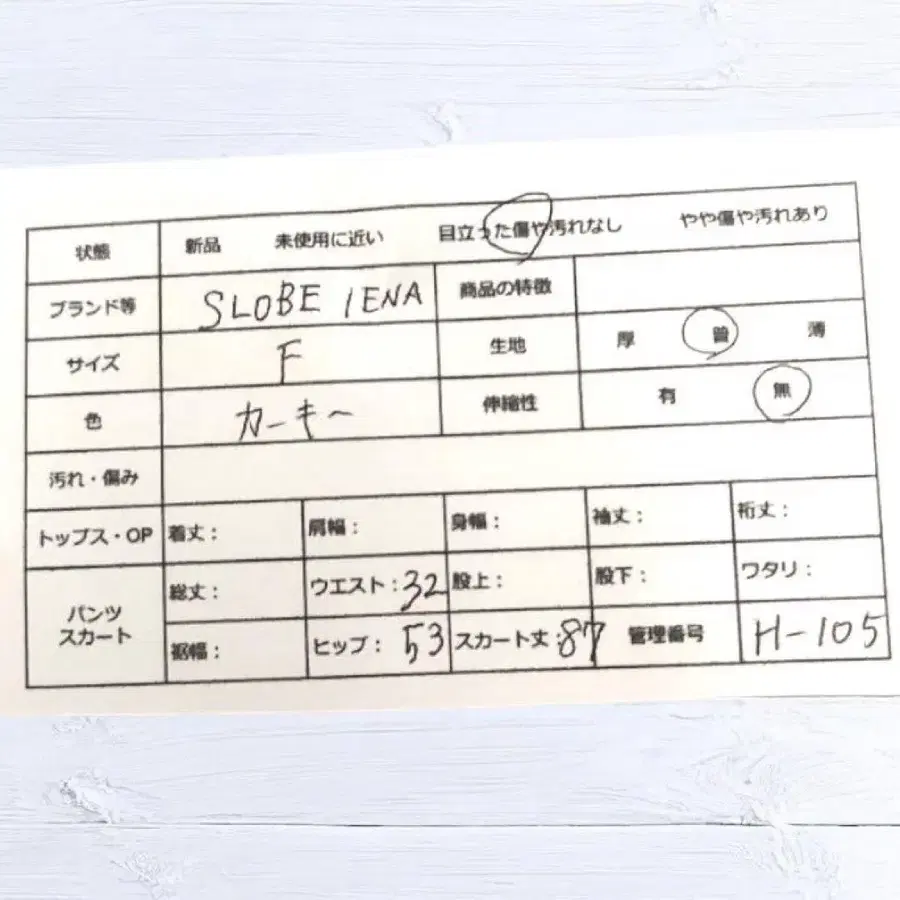 状態 新品 未使用に近い 目立った傷や汚れなし やや傷や汚れあり
ブランド等 SLOBE IENA 商品の特徴
サイズ F 生地 厚 普 薄
色 カーキー 伸縮性 有 無
汚れ・傷み
トップス・OP 着丈: 肩幅: 身幅: 袖丈: 裄丈:
パンツ スカート
総丈: ウエスト:32 股上: 股下: ワタリ:
裾幅: ヒップ: 53 スカート丈:87 管理番号 H-105